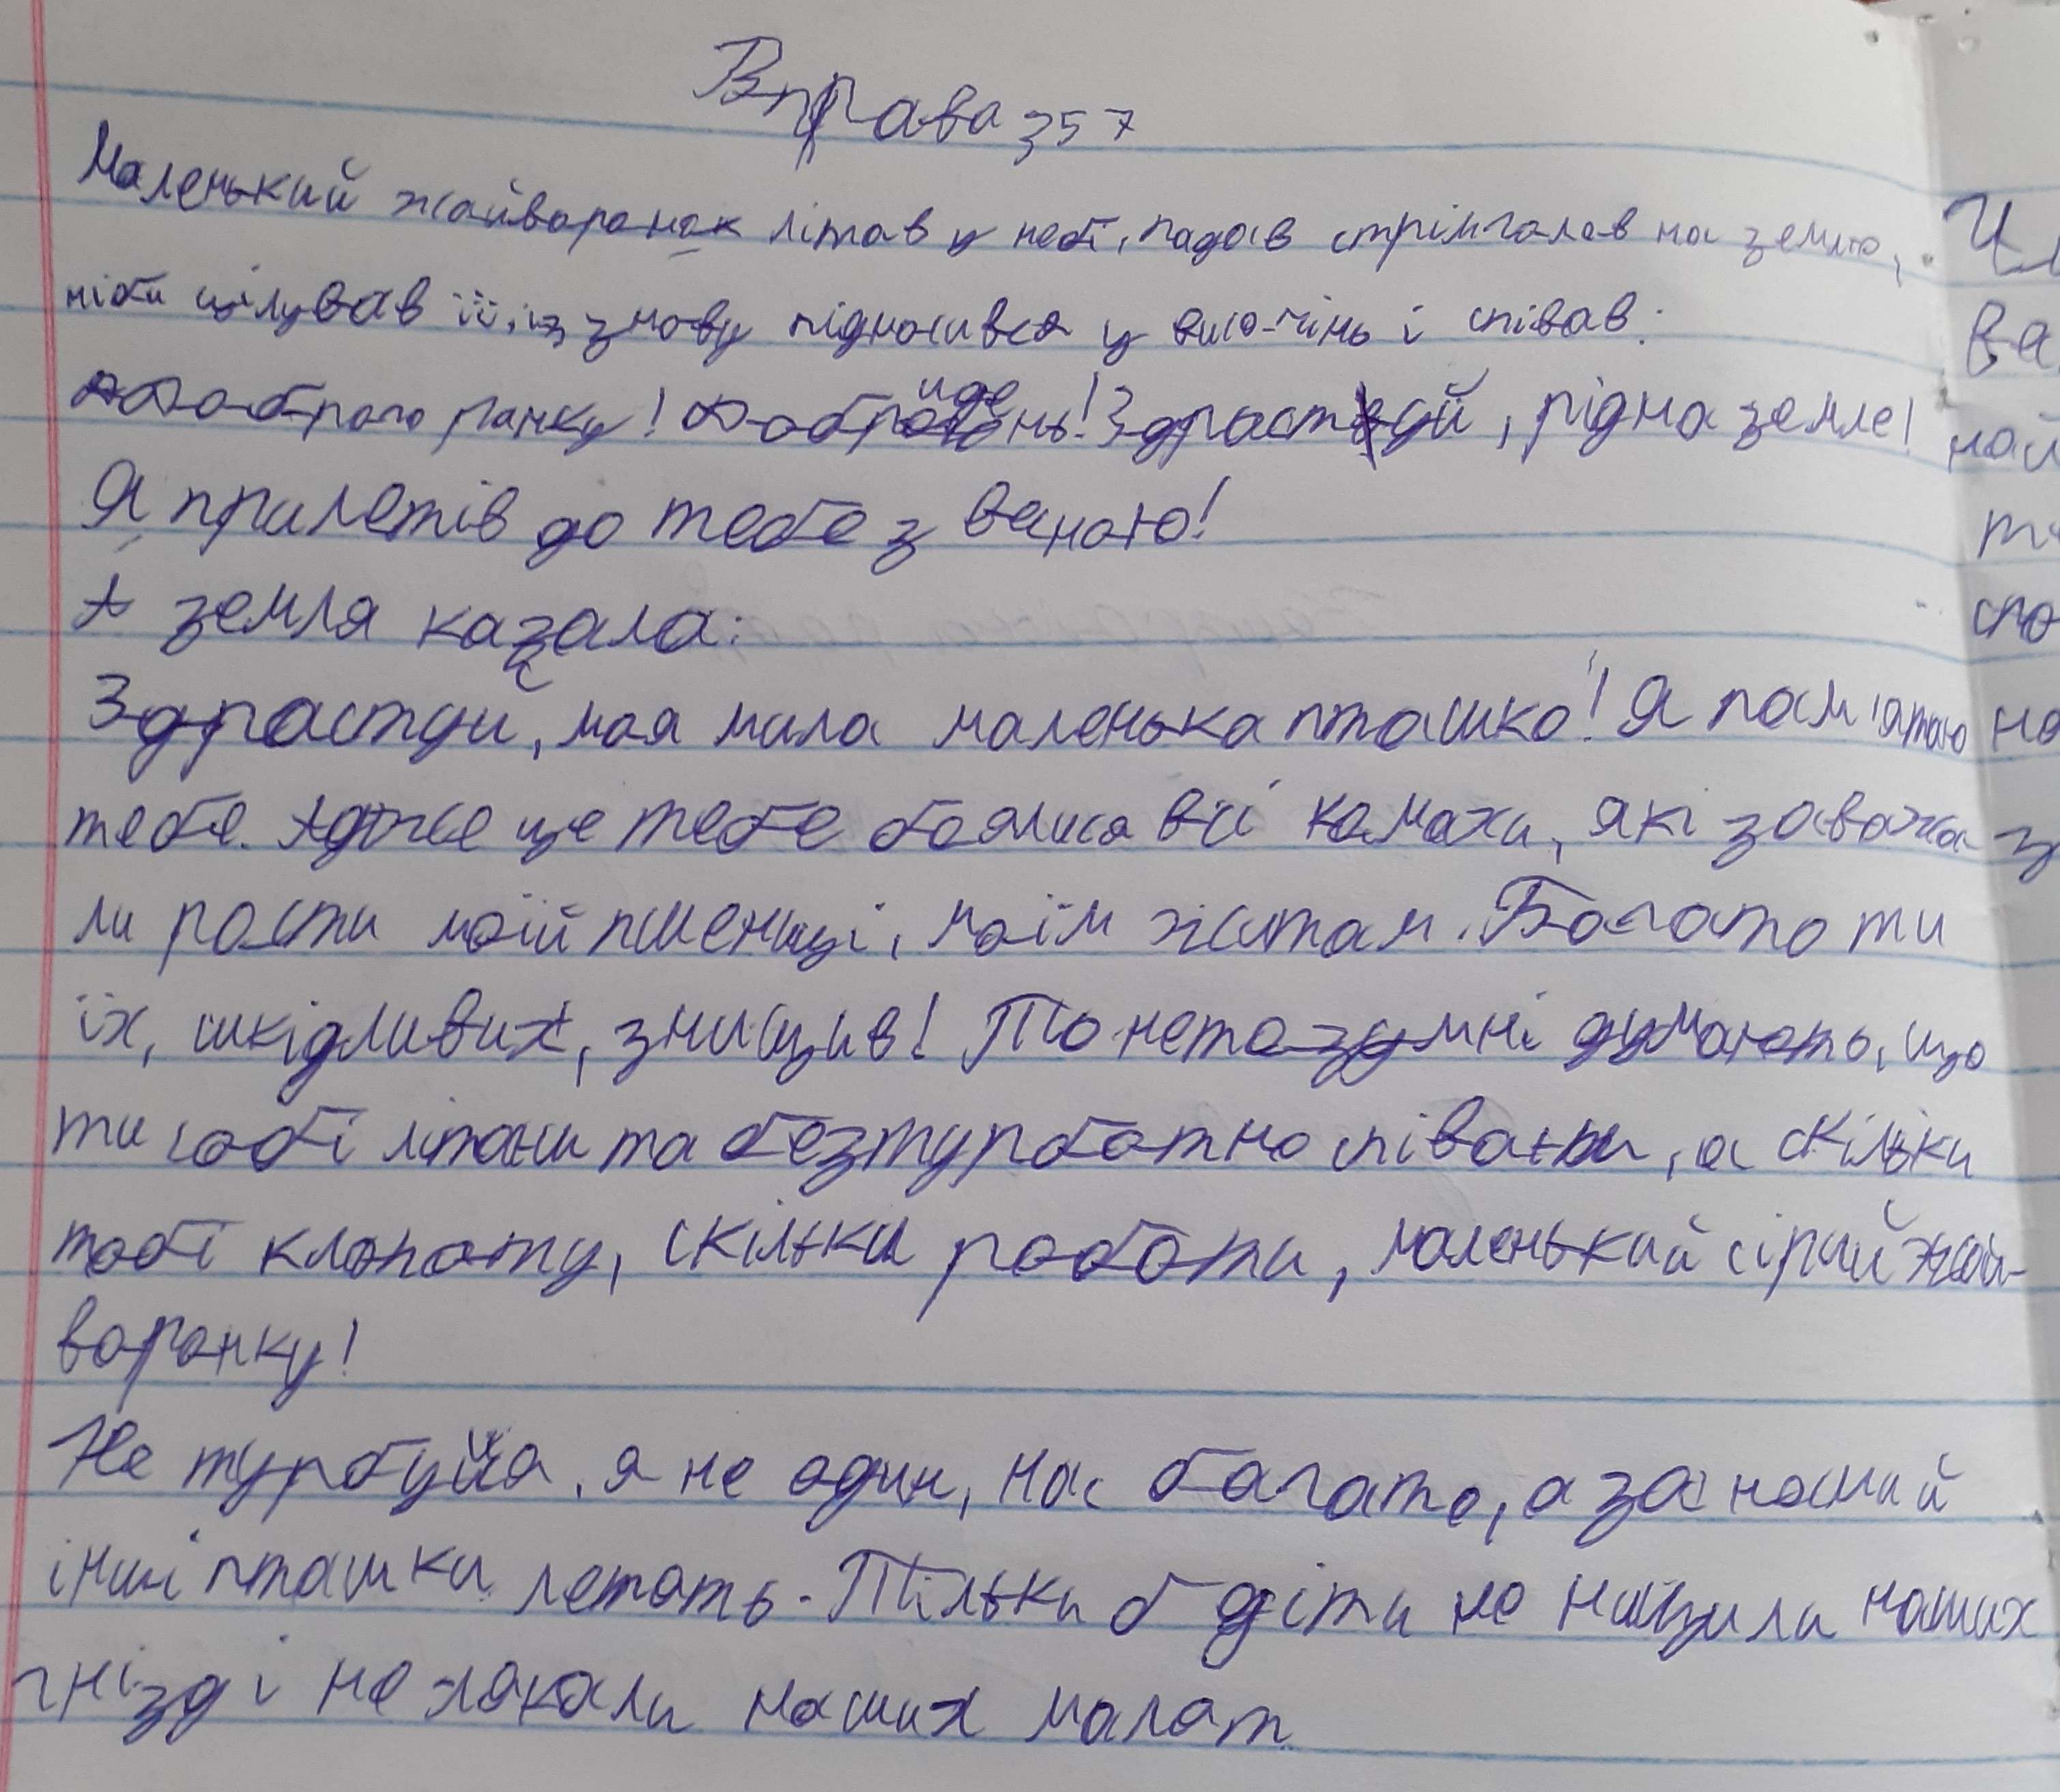 Вправа 357
Маленький жайворонок літав у небі, падав стрімголов на землю,
ніби цілував її, із знову підносився у височінь і співав:
Доброго ранку! Добрийдень! Здрастуй, рідна земле!
Я прилетів до тебе з весною!
А земля казала:
Здрастуй, моя мила маленька пташко! Я пам'ятаю
тебе. Адже це тебе боялися всі комахи, які заважа-
ли рости моїй пшениці, моїм житам. Багато ти
їх, шкідливих, знищив! То нерозумні думають, що
ти собі літаєш та безтурботно співаєш, а скільки
тобі клопоту, скільки роботи, маленький сірий жай-
воронку!
Не турбуйся, я не один, нас багато, а за мною й
інші пташки летять. Тільки б діти не нищили наших
гнізд і не лякали наших малят.